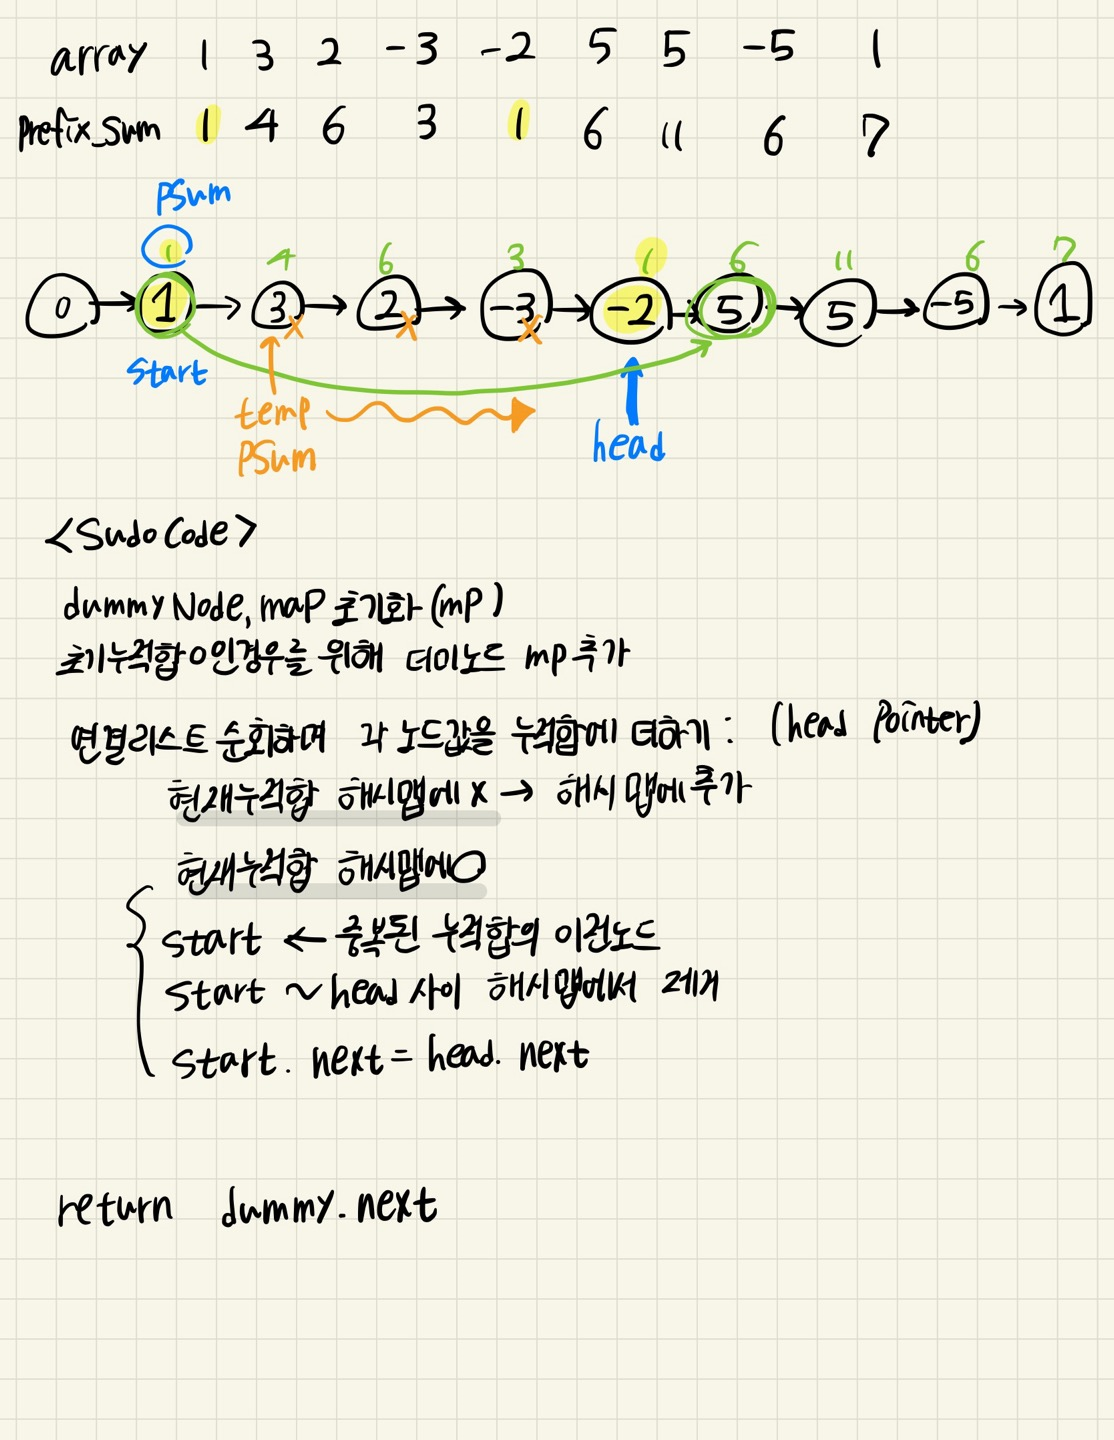 array 1 3 2 -3 -2 5 5 -5 1
Prefix_Sum 1 4 6 3 1 6 11 6 7
PSum
1 4 6 3 1 6 11 6 7
0 → 1 → 3 → 2 → -3 → -2 → 5 → 5 → -5 → 1
x x x
Start
temp
PSum
head
<Sudo Code>
dummy Node, map 초기화 (mp)
초기누적합 0인경우를 위해 더미노드 mp 추가
연결리스트 순회하며 각 노드값을 누적합에 더하기 : (head Pointer)
현재누적합 해시맵에 x → 해시맵에 추가
현재누적합 해시맵에 O
start ← 중복된 누적합의 이전노드
start ~ head 사이 해시맵에서 제거
start. next = head. next
return dummy. next